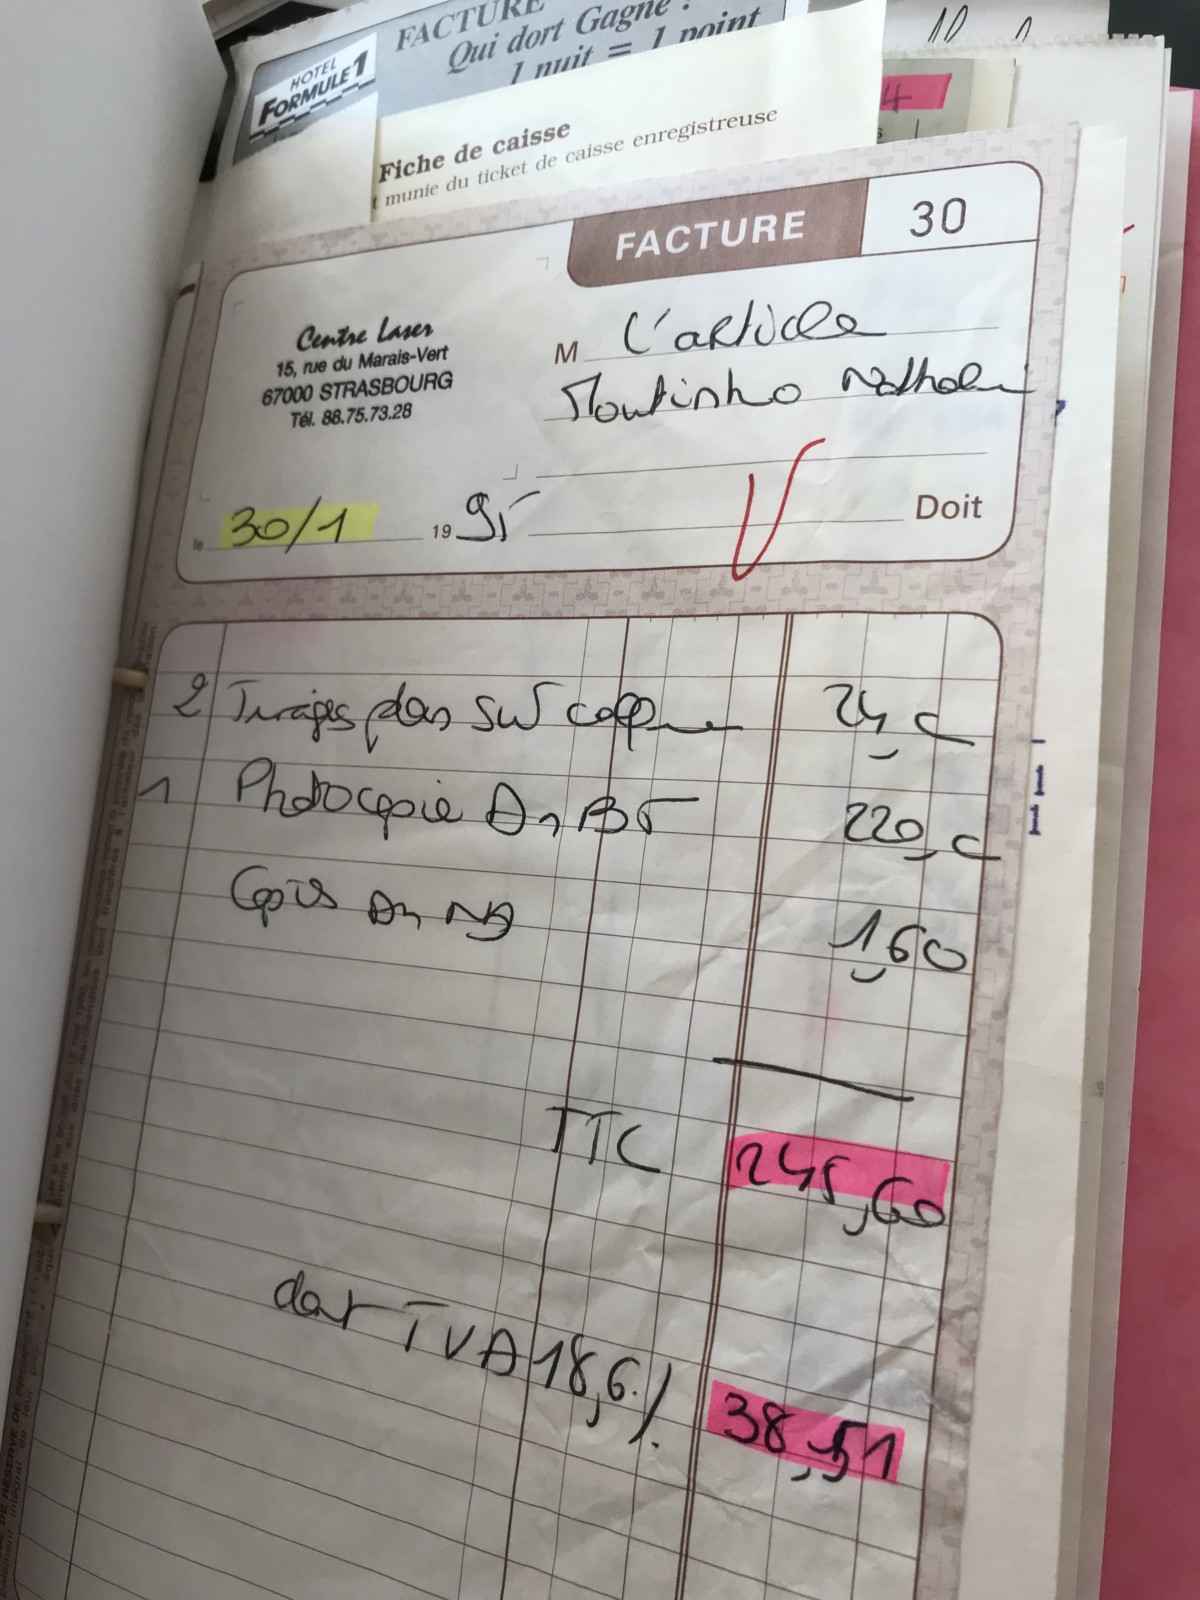 FACTURE
Qui dort Gagne !
1 nuit = 1 point
HOTEL
FORMULE 1
Fiche de caisse
munie du ticket de caisse enregistreuse
4
FACTURE 30
Centre Laser
15, rue du Marais-Vert
67000 STRASBOURG
Tél. 88.75.73.28
M L'article
Moutinho
Doit
le 30/1 1995
2 Tirages plan sur calque 24,-
1 Photocopie
220,-
1,60
TTC 245,60
dont TVA 18,6% 38,51